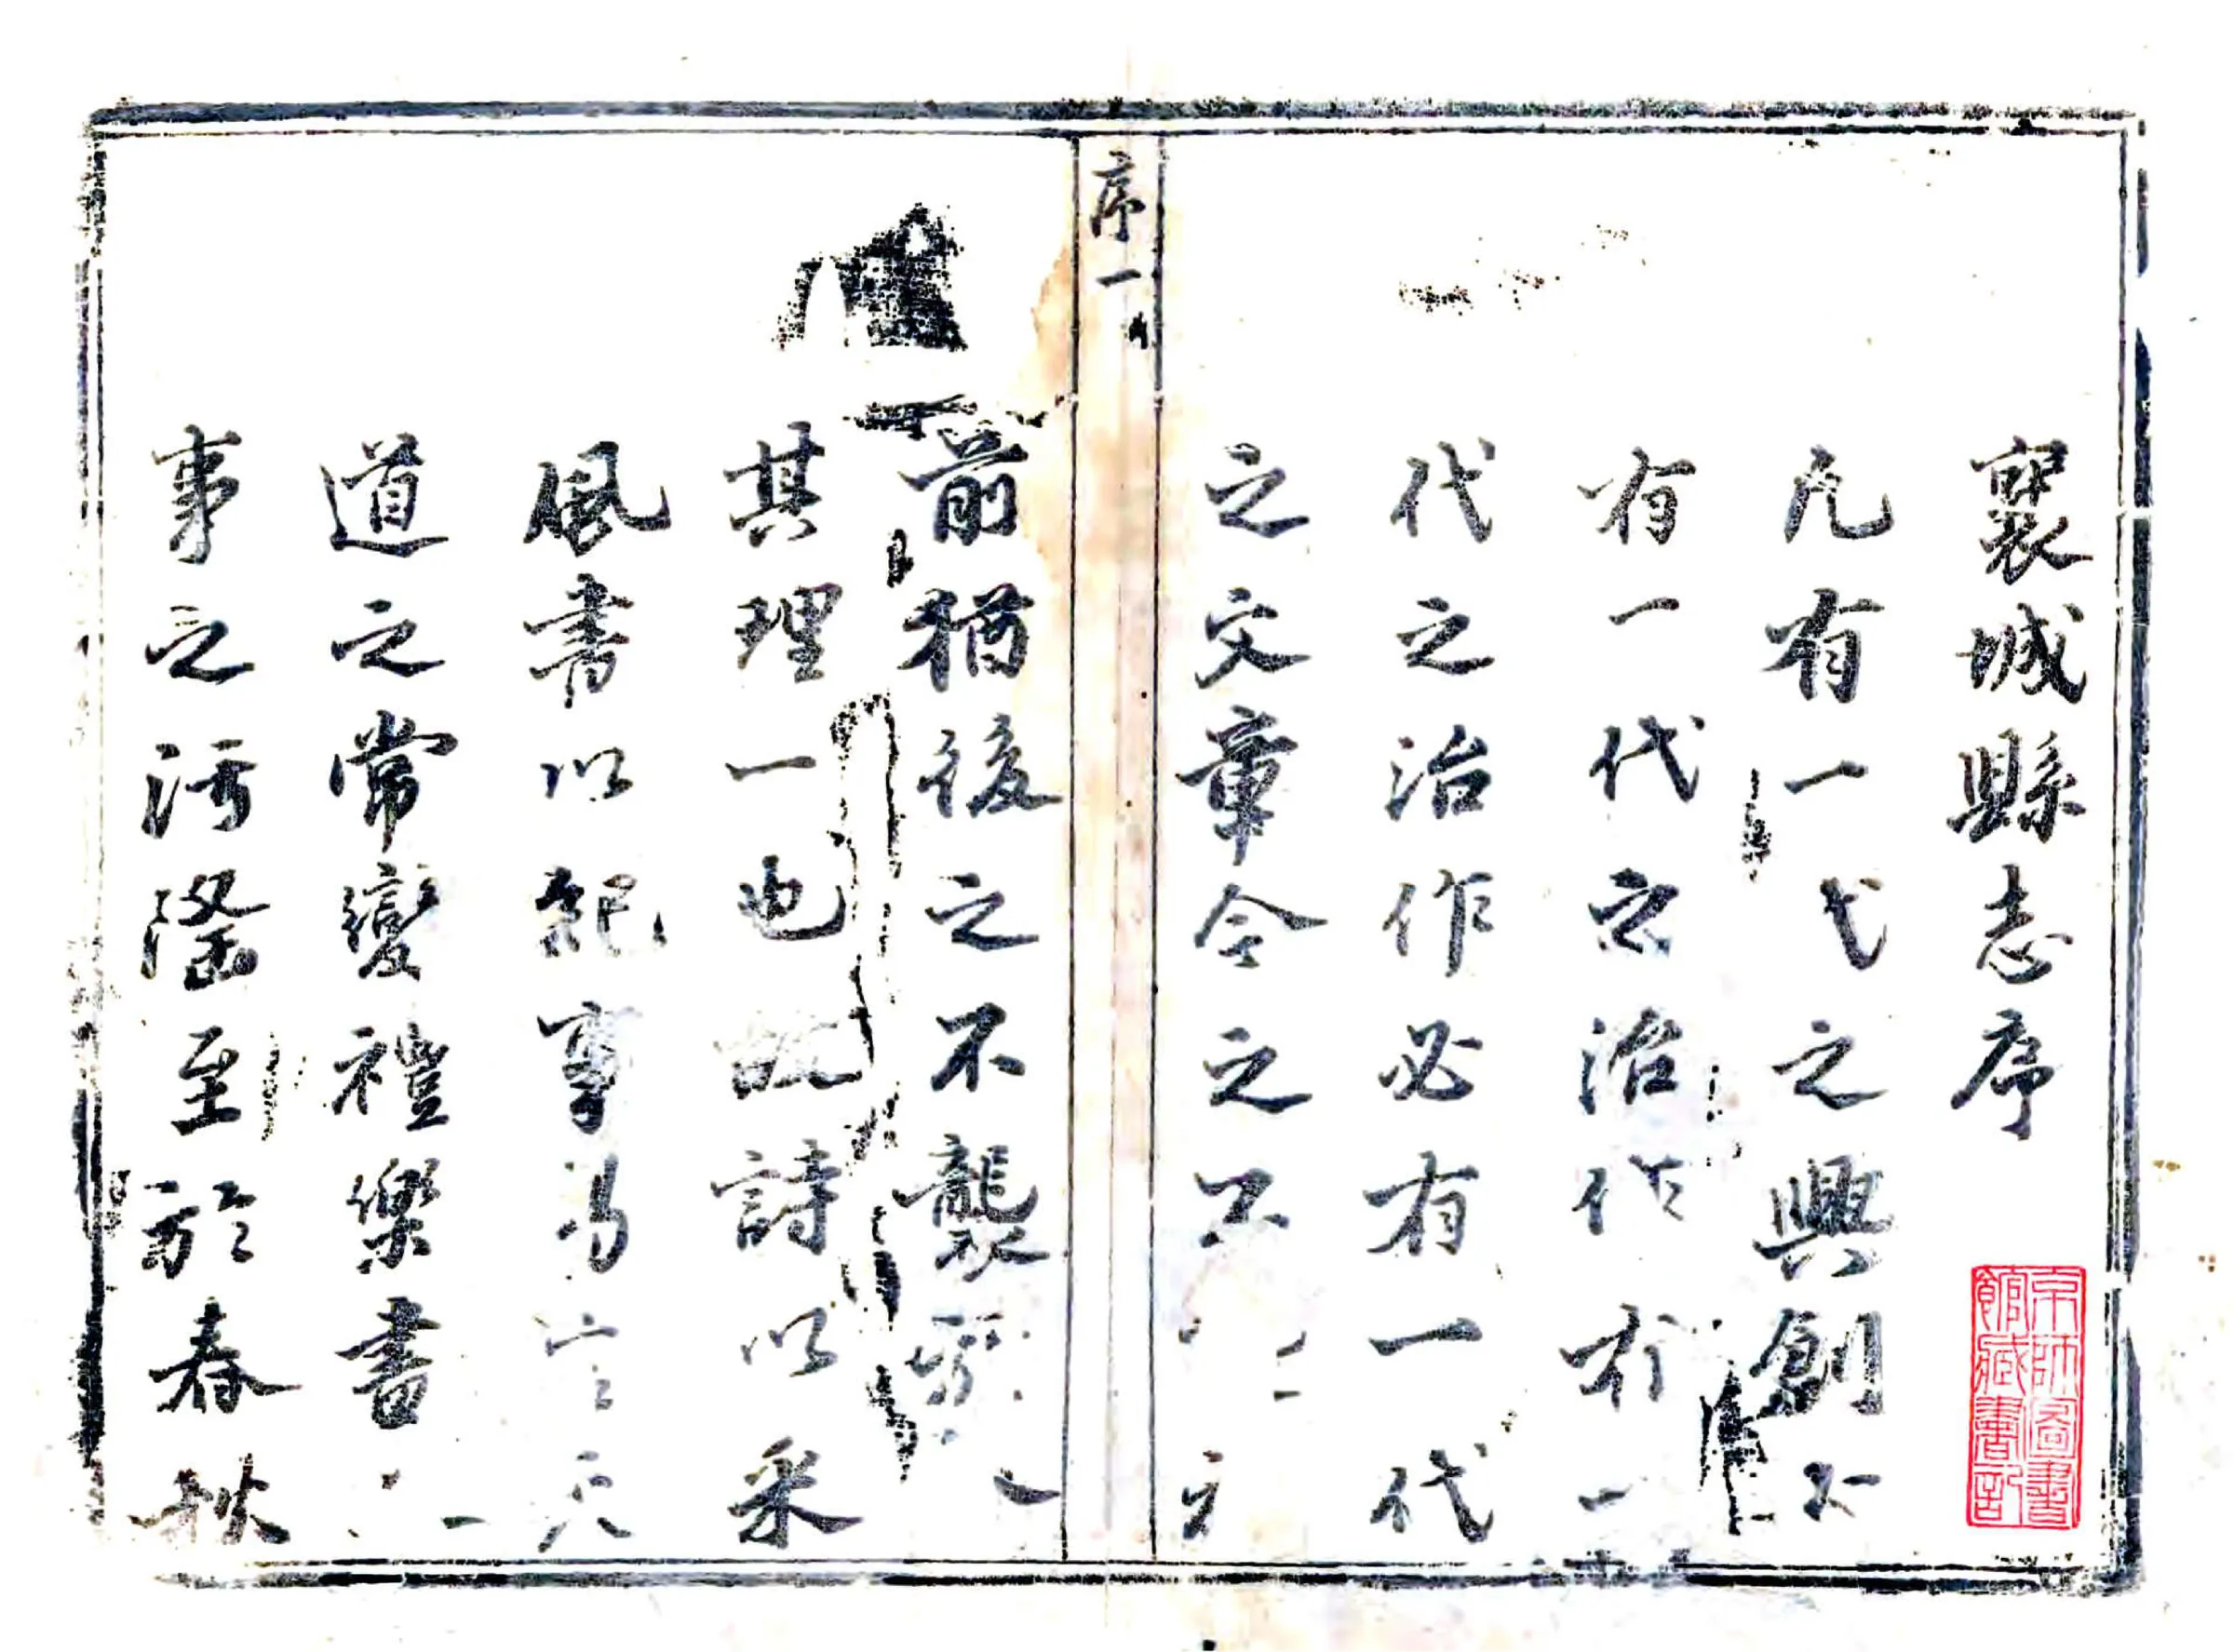 襄城縣志序
凡有一代之興創不
有一代之治作有一
代之治作必有一代
之文章今之不
前猶後之不襲
其理一也詩以采
風書以紀事易言天
道之常變禮樂書
事之污隆至於春秋
序一
京師圖書
館藏書記